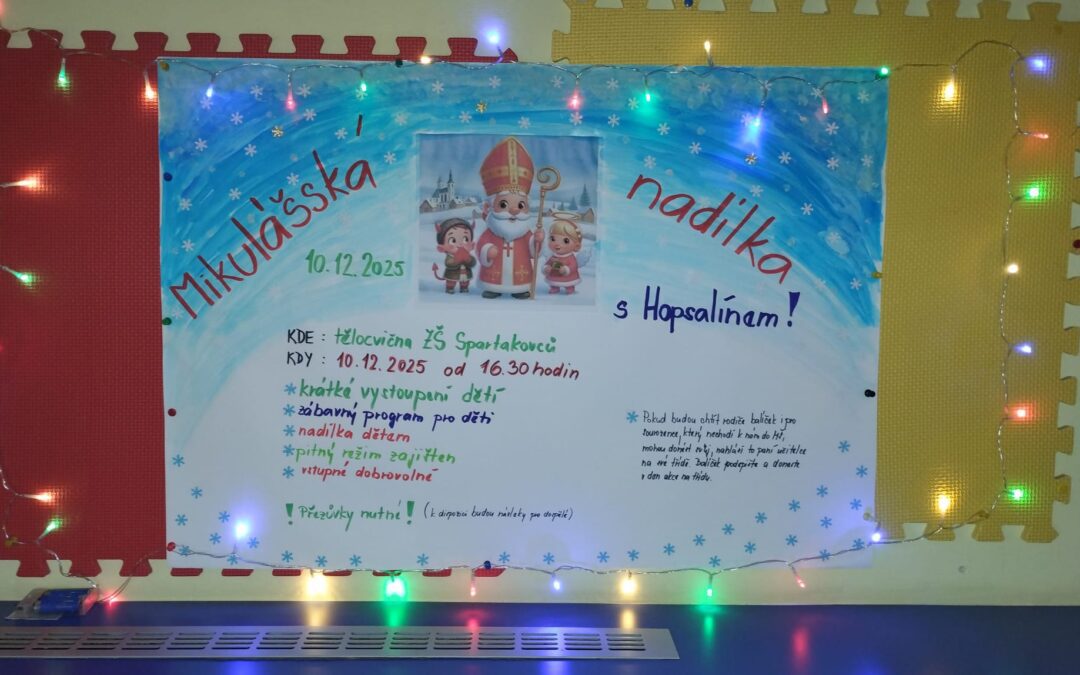 Mikulášská nadílka
10.12.2025
s Hopsalínem!
KDE : tělocvična ZŠ Spartakovců
KDY : 10.12.2025 od 16.30 hodin
krátké vystoupení dětí
zábavný program pro děti
nadílka dětem
pitný režim zajištěn
vstupné dobrovolné
! Přezůvky nutné ! (k dispozici budou návleky pro dospělé)
Pokud budou chtít rodiče balíček i pro
sourozence, který nechodí k nám do MŠ,
mohou donést svůj, nahlásí to paní učitelce
na své třídě. Balíček podepište a doneste
v den akce na třídu.